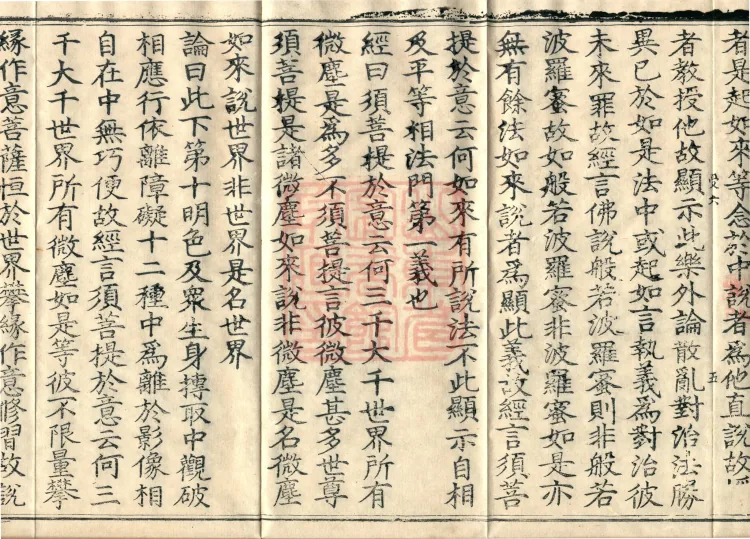 者是起如來等念於中說者爲他直說故授
者教授他故顯示此樂外論散亂對治法勝
異已於如是法中或起如言執義爲對治彼
未來罪故經言佛說般若波羅蜜則非般若
波羅蜜故如般若波羅蜜非波羅蜜如是亦
無有餘法如來說者爲顯此義故經言須菩
提於意云何如來有所說法不此顯示自相
及平等相法門第一義也
經曰須菩提於意云何三千大千世界所有
微塵是爲多不須菩提言彼微塵甚多世尊
須菩提是諸微塵如來說非微塵是名微塵
如來說世界非世界是名世界
論曰此下第十明色及衆生身搏取中觀破
相應行依離障礙十二種中爲離於影像相
自在中無巧便故經言須菩提於意云何三
千大千世界所有微塵如是等彼不限量攀
緣作意菩薩恒於世界攀緣作意修習故說
五